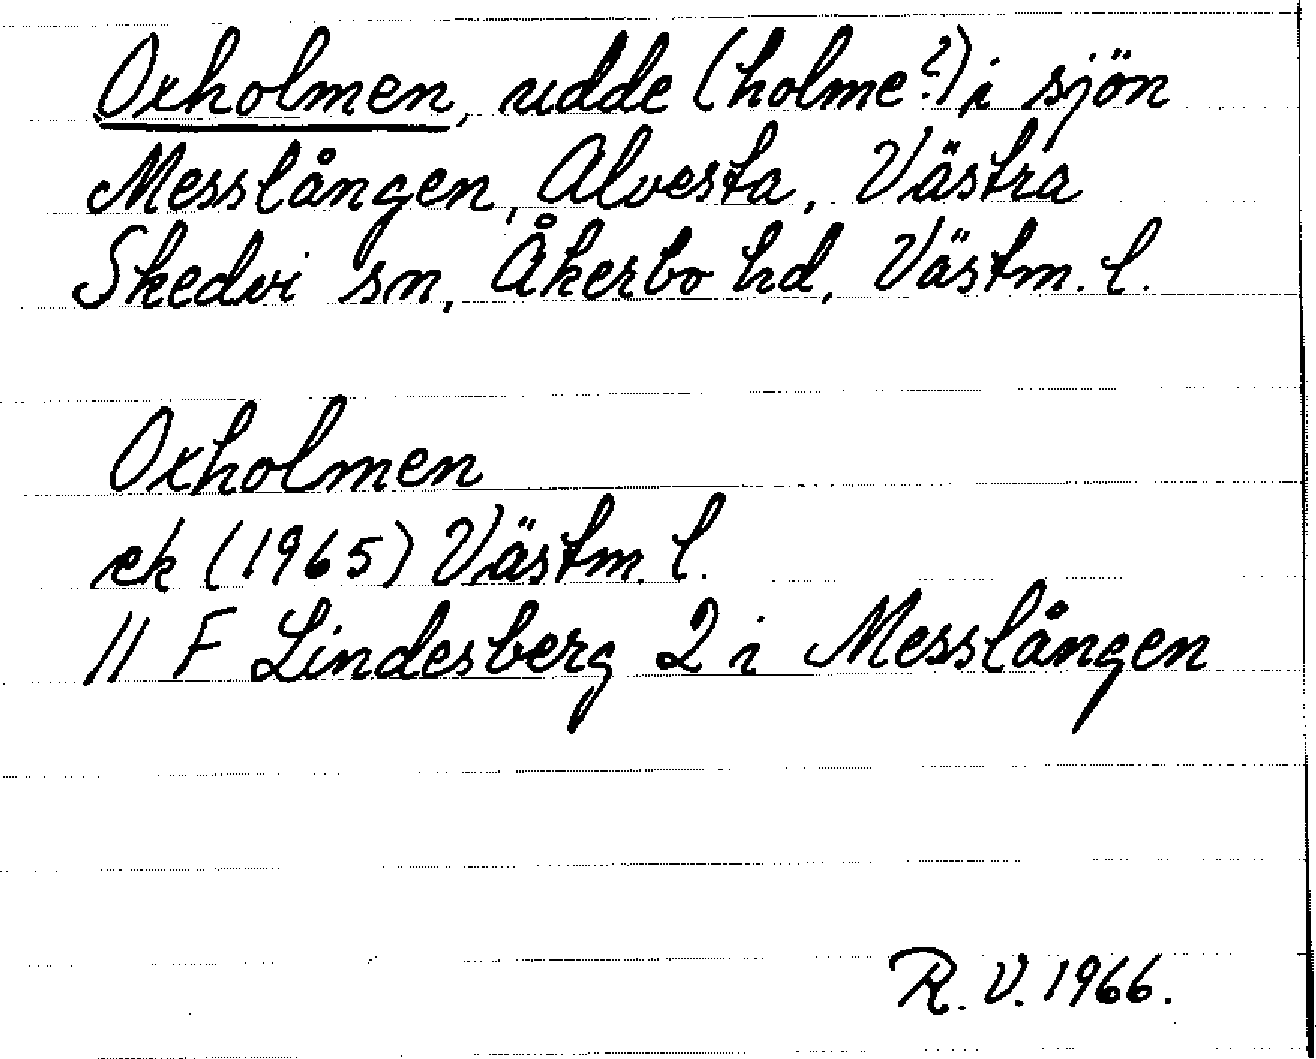 Oxholmen, udde (holme?) i sjön
Messlången, Alvesta, Västra
Skedvi sn, Åkerbo hd, Västm. l.
Oxholmen
ek (1965) Västm. l.
11 F Lindesberg 2 i Messlången
R. V. 1966.